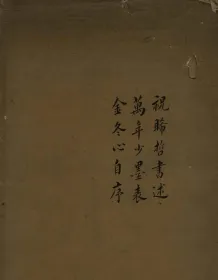 祝晞哲書述
萬年少墨表
金冬心自序